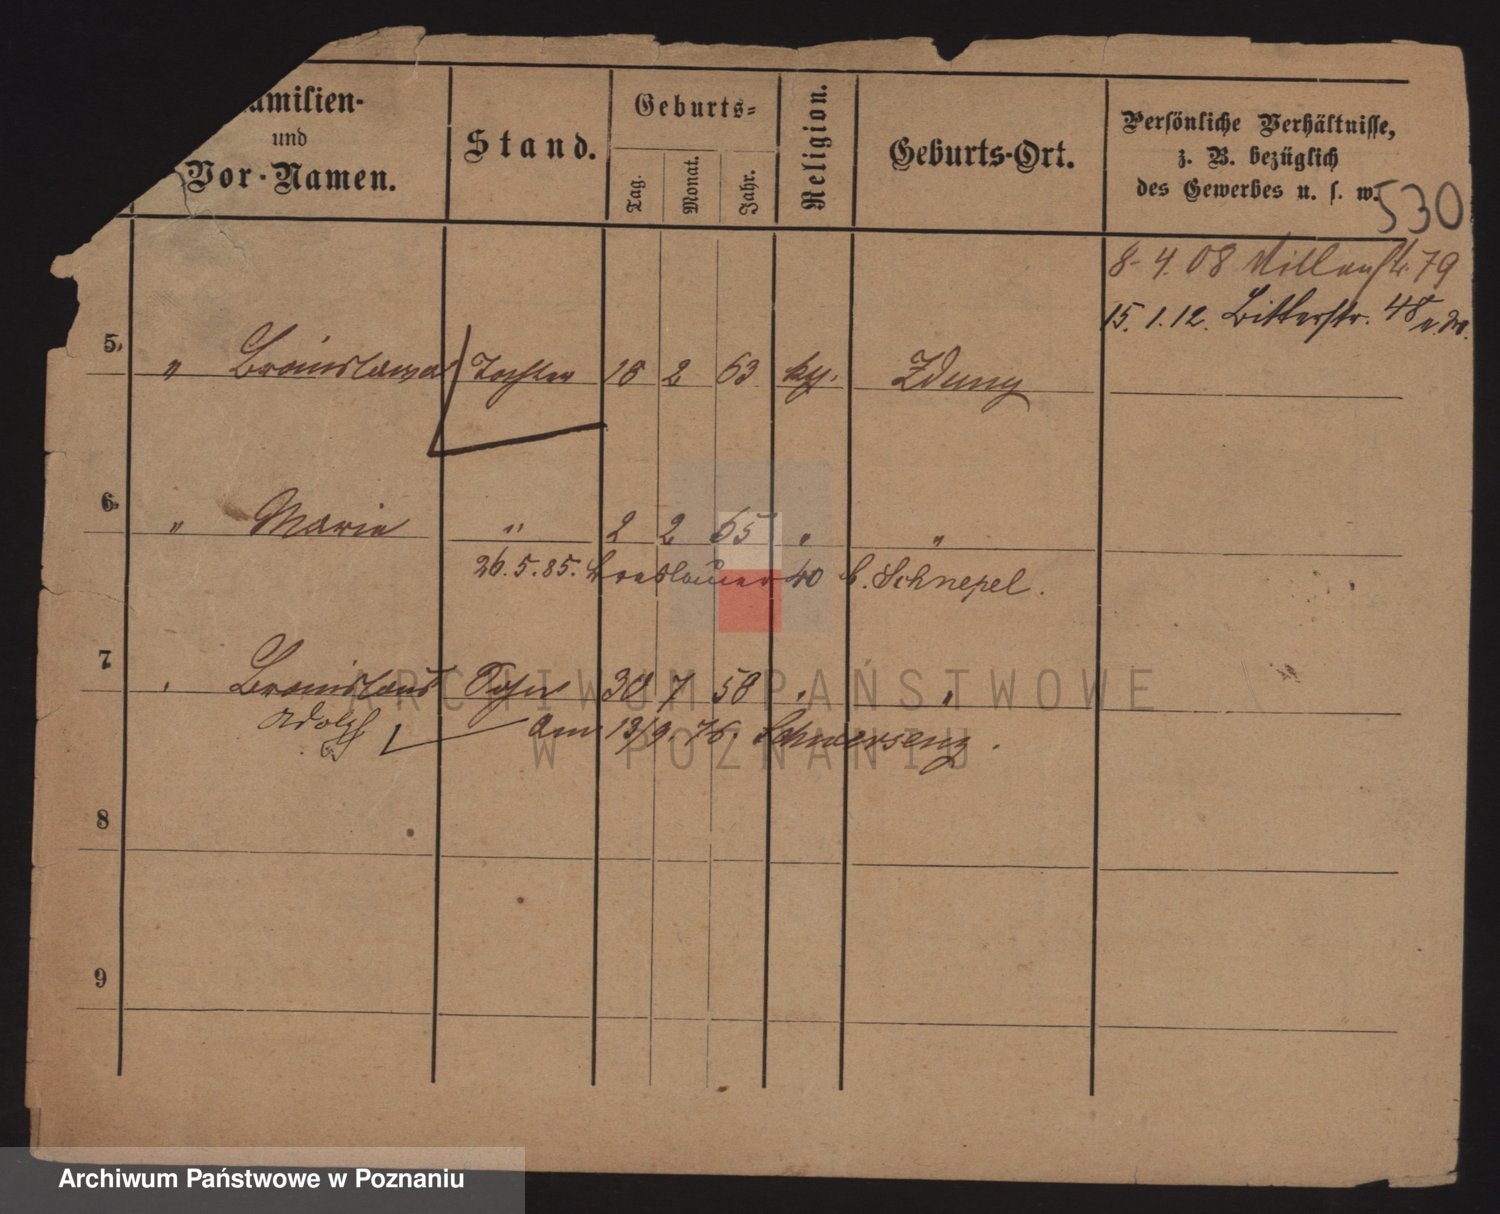 Familien-
und
Vor-Namen.
Stand.
Geburts-
Tag.
Monat.
Jahr.
Religion.
Geburts-Ort.
Persönliche Verhältnisse,
z. B. bezüglich
des Gewerbes u. s. w.
530
8-4.08 79
15.1.12. Bitterstr. 48
5. " Bronislawa Tochter 18 2 63 kth. Zduny
6. " Marie " 2 2 65 " "
26.5.85. Breslauer 40 b. Schnepel.
7 Bronislaus Sohn 30 7 58 " "
Adolf Am 13/9.76. Schwersenz.
8
9
ARCHIWUM PAŃSTWOWE
W POZNANIU
Archiwum Państwowe w Poznaniu